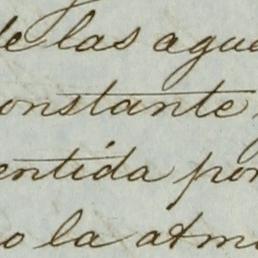 de lasague
onstante
entida por
o la atmo